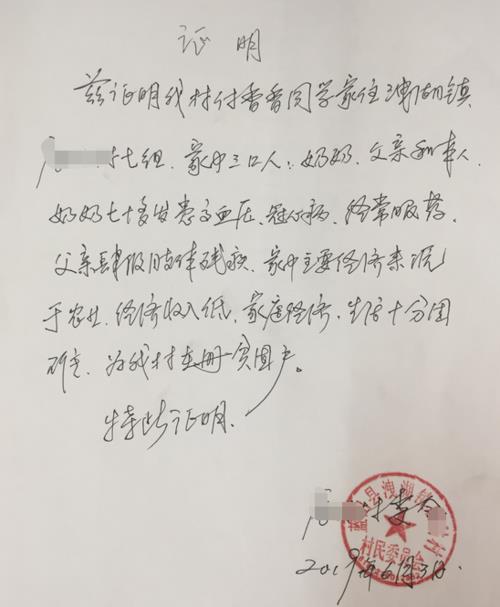 证明
兹证明我村付香香同学家住洩湖镇
村七组，家中三口人：奶奶、父亲和本人，
奶奶七十多岁患高血压、冠心病，经常服药，
父亲肢体残疾，家中主要经济来源
于农业，经济收入低，家庭经济、生活十分困
难，为我村在册贫困户。
特此证明。
村委会
蓝田县洩湖镇 村
村民委员会
2019年6月3日